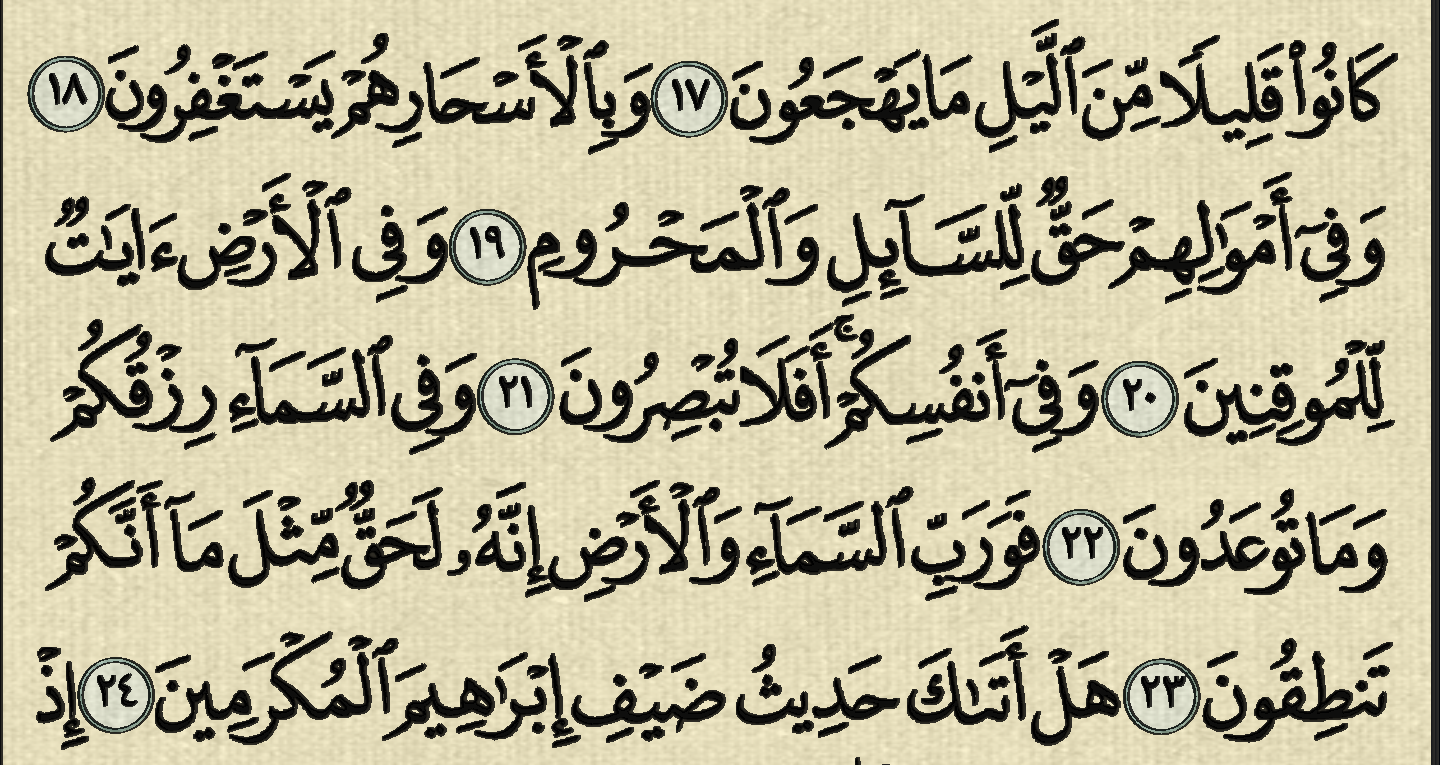 كَانُوا۟ قَلِيلًا مِّنَ ٱلَّيْلِ مَا يَهْجَعُونَ ١٧ وَبِٱلْأَسْحَارِ هُمْ يَسْتَغْفِرُونَ ١٨
وَفِىٓ أَمْوَٰلِهِمْ حَقٌّ لِّلسَّآئِلِ وَٱلْمَحْرُومِ ١٩ وَفِى ٱلْأَرْضِ ءَايَٰتٌ
لِّلْمُوقِنِينَ ٢٠ وَفِىٓ أَنفُسِكُمْ ۚ أَفَلَا تُبْصِرُونَ ٢١ وَفِى ٱلسَّمَآءِ رِزْقُكُمْ
وَمَا تُوعَدُونَ ٢٢ فَوَرَبِّ ٱلسَّمَآءِ وَٱلْأَرْضِ إِنَّهُۥ لَحَقٌّ مِّثْلَ مَآ أَنَّكُمْ
تَنطِقُونَ ٢٣ هَلْ أَتَىٰكَ حَدِيثُ ضَيْفِ إِبْرَٰهِيمَ ٱلْمُكْرَمِينَ ٢٤ إِذْ